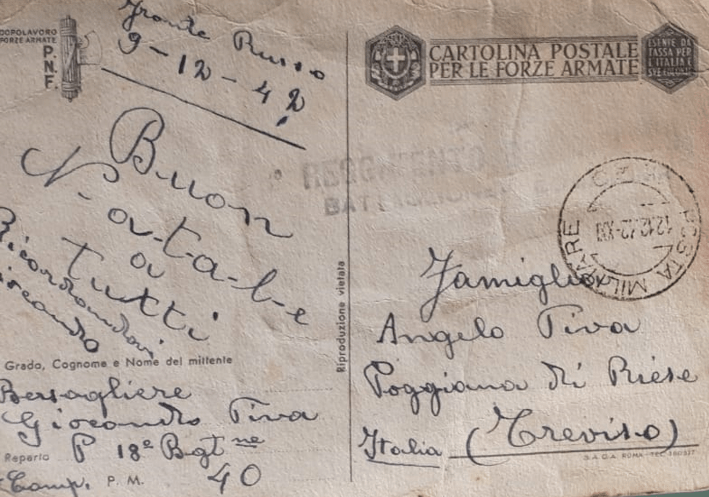 DOPOLAVORO
FORZE ARMATE
P.
N.
F.
Fronte Russo
9-12-42
Buon
Natale
a
tutti
Ricordandovi
Giocondo
Grado, Cognome e Nome del mittente
Bersagliere
Giocondo Tiva
Reparto P 18º Bgt ne
Comp. P. M. 40
Riproduzione vietata
CARTOLINA POSTALE
PER LE FORZE ARMATE
ESENTE DA
TASSA PER
L'ITALIA E
REGGIMENTO
POSTA MILITARE
12.12.42-XXI
Famiglia
Angelo Tiva
Poggiana di Riese
Italia (Treviso)